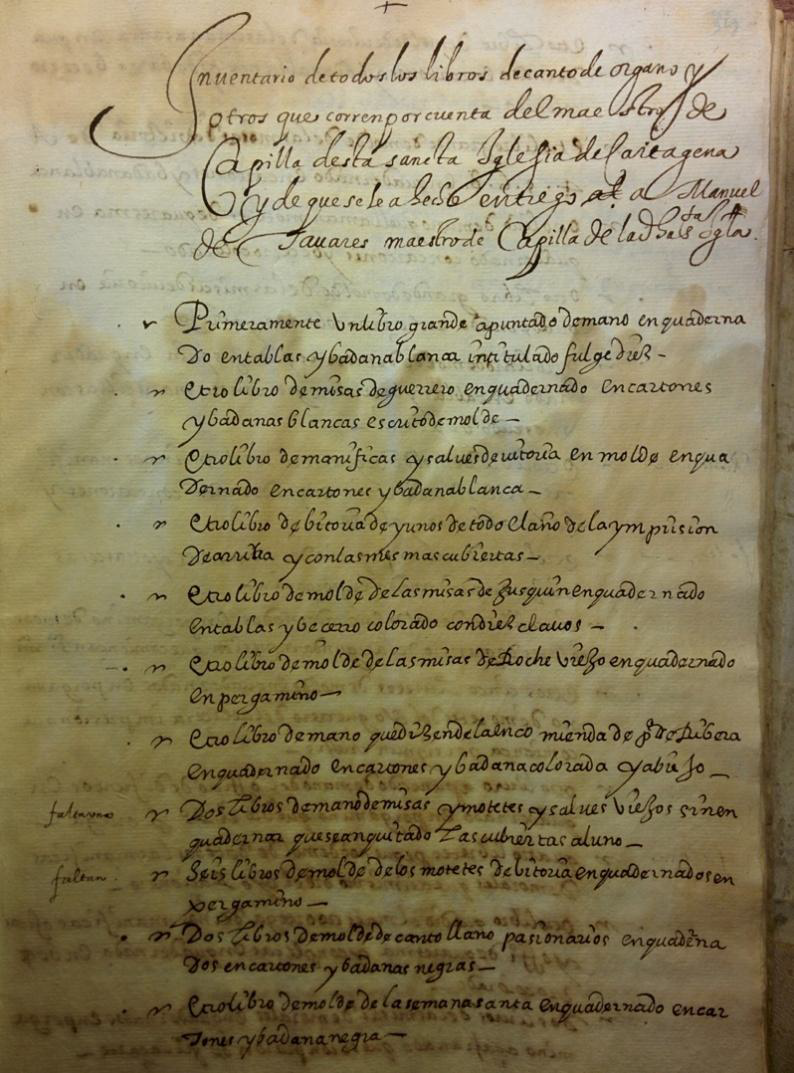 +
Inuentario de todos los libros de canto de organo y
otros que corren por cuenta del maestro de
Capilla desta sancta Iglesia de Cartagena
y de que se le a hecho entrego a Manuel
de Tauares maestro de Capilla de la dha sta Igla.
Primeramente Un libro grande apuntado de mano enquaderna
do en tablas y badana blanca intitulado
Otro libro de misas de guerrero enquadernado en cartones
y badanas blancas escrito de molde —
Otro libro de manificas y salues de uitoria en molde enqua
dernado en cartones y badana blanca —
Otro libro de bitoria de ynos de todo el año de la ymprision
de arriba y con las mesmas cubiertas —
Otro libro de molde de las misas de Jusquin enquadernado
en tablas y becerro colorado con diez clauos —
Otro libro de molde de las misas de Roche Viejo enquadernado
en pergamino —
Otro libro de mano que dizen de la enco mienda de po de Ribera
enquadernado en cartones y badana colorada y abiejo —
falta uno Dos libros de mano de misas y motetes y salues Viejos sin en
quadernar que sean quitado las cubiertas al uno —
faltan. Seis libros de molde de los motetes de bitoria enquadernados en
pergamino —
Dos libros de molde de canto llano pasionarios enquaderna
dos en cartones y badanas negras —
Otro libro de molde de la semana santa enquadernado en car
tones y badana negra —